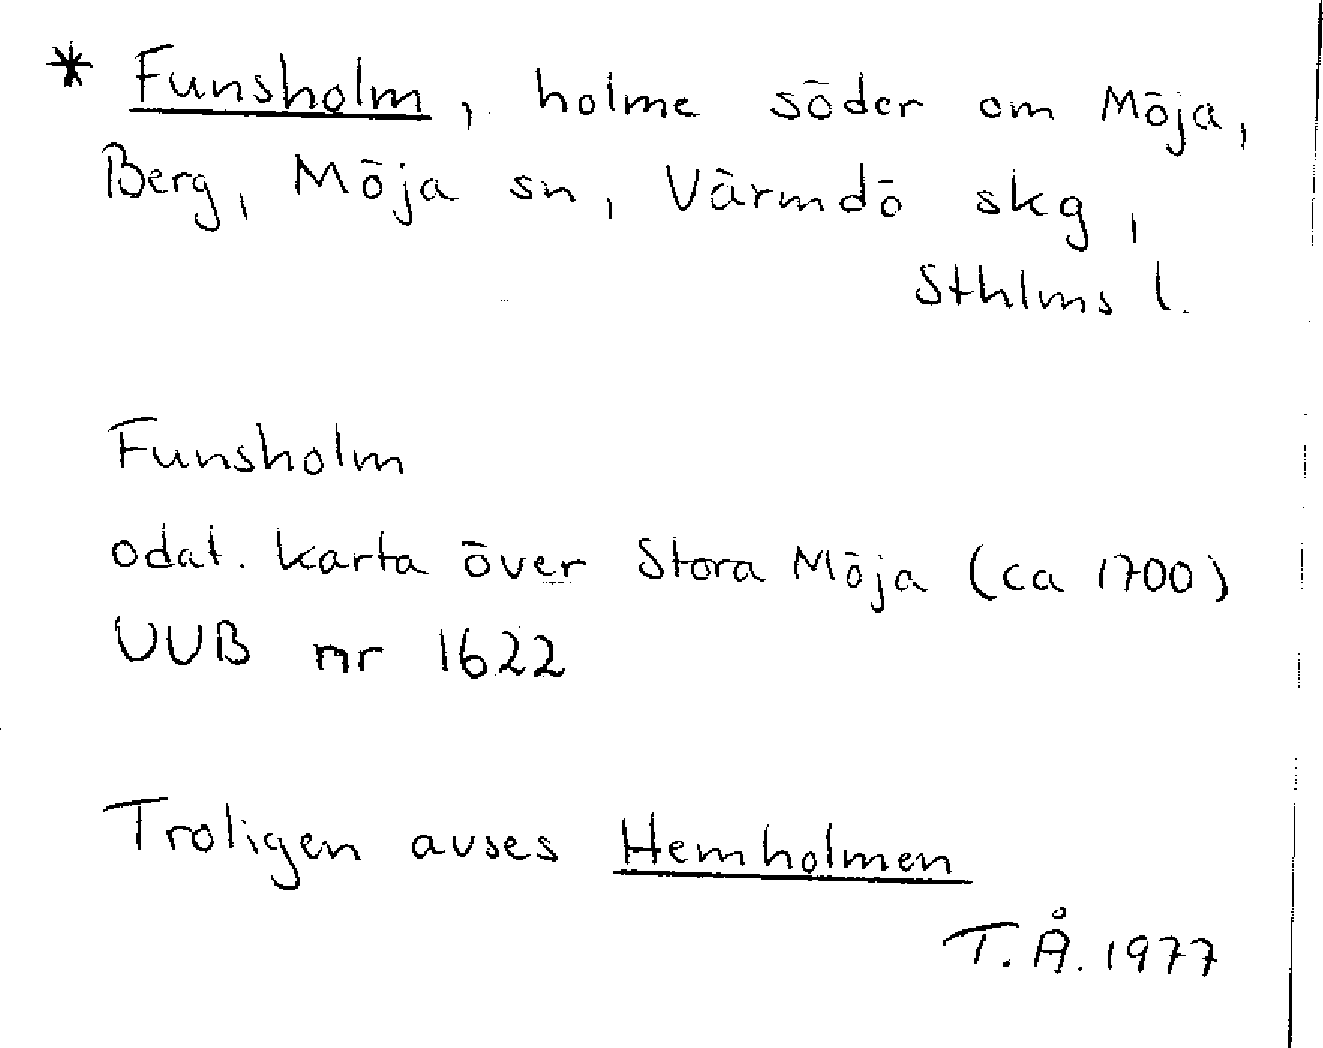 * Funsholm, holme söder om Möja,
Berg, Möja sn, Värmdö skg,
Sthlms l.
Funsholm
odat. karta över Stora Möja (ca 1700)
UUB nr 1622
Troligen avses Hemholmen
T.Å. 1977